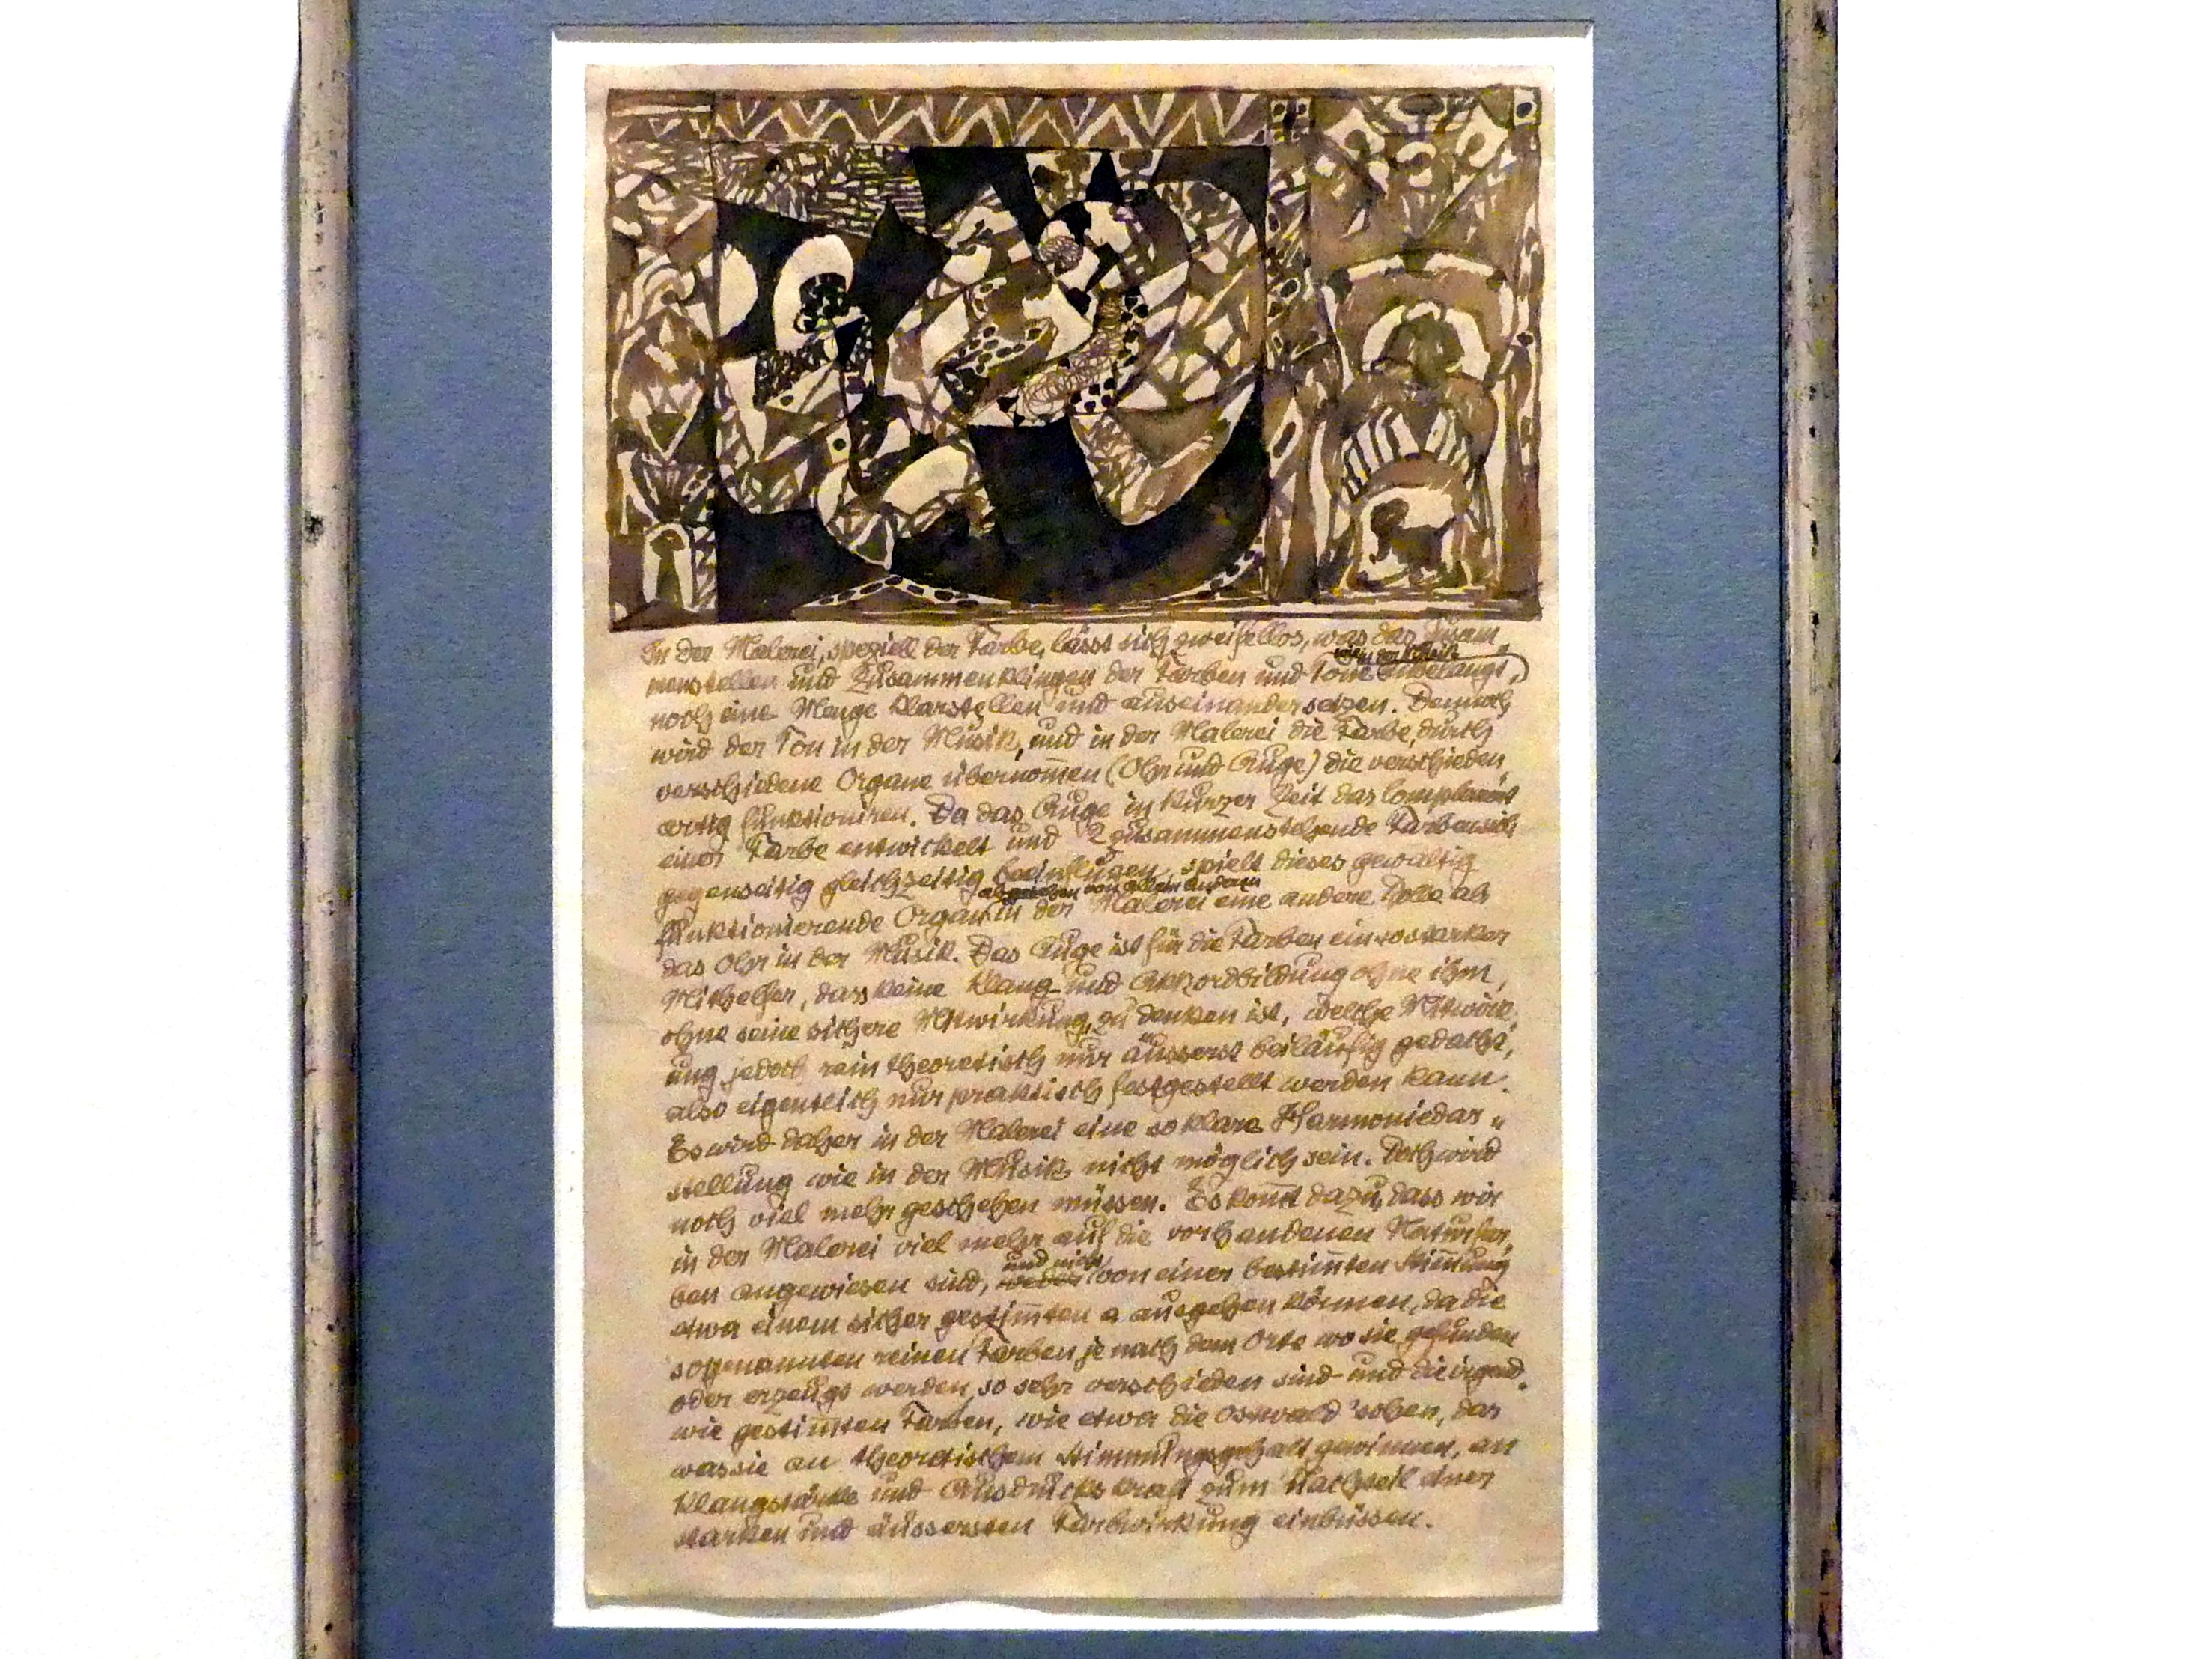 In der Malerei, speziell der Farbe, lässt sich zweifellos, was das Zusam„
wie in der Musik
menstellen und Zusammenklingen der Farben und Töne anbelangt,
noch eine Menge klarstellen und auseinandersetzen. Dennoch
wird der Ton in der Musik, und in der Malerei die Farbe, durch
verschiedene Organe übernom̅en (Ohr und Auge) die verschieden„
artig funktioniren. Da das Auge in kurzer Zeit das
einer Farbe entwickelt und 2 zusammenstehende Farben sich
gegenseitig gleichzeitig beeinflußen, spielt dieses gewaltig
abgesehen von allem andern
funktionierende Organ in der Malerei eine andere Rolle als
das Ohr in der Musik. Das Auge ist für die Farben ein so starker
Mithelfer, dass keine Klang- und Akkordbildung ohne ihm,
ohne seine sichere Mitwirkung, zu denken ist, welche Mitwirk„
ung jedoch rein theoretisch nur äusserst beiläufig gedacht,
also eigentlich nur praktisch festgestellt werden kann.
Es wird daher in der Malerei eine so klare Harmoniedar„
stellung wie in der Musik nicht möglich sein. Doch wird
noch viel mehr geschehen müssen. Es kom̅t dazu, dass wir
in der Malerei viel mehr auf die vorhandenen Naturfar„
und nicht
ben angewiesen sind, von einer bestim̅ten Stim̅ung
etwa einem sicher gestim̅ten a ausgehen können, da die
sogenannten reinen Farben je nach dem Orte wo sie gefunden
oder erzeugt werden, so sehr verschieden sind und die irgend„
wie gestim̅ten Farben, wie etwa die Ostwald'schen, das
was sie an theoretischem Stimmungsgehalt gewinnen, an
Klangstärke und Ausdruckskraft zum Nachteil einer
starken und äussersten Farbwirkung einbüssen.